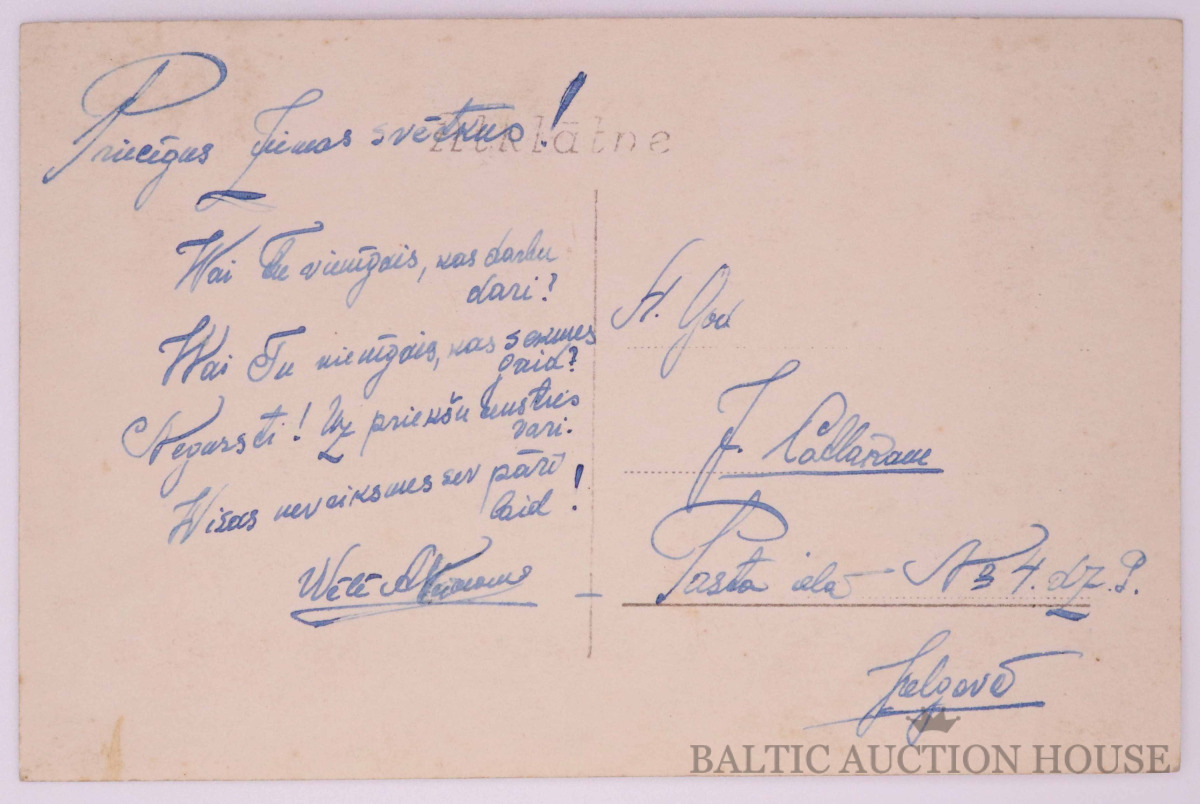 Priecīgus Ziemas svētkus!
Atklātne
Wai Tu vienīgais, kas darbu
dari?
Wai Tu vienīgais, kas sekmes
gaid?
Negursti! Uz priekšu
vari.
Wisas neveiksmes sev pāri
laid!
Wēlē
A. God.
J.
Pasta ielā № 4. dz. 9.
Jelgavā
BALTIC AUCTION HOUSE